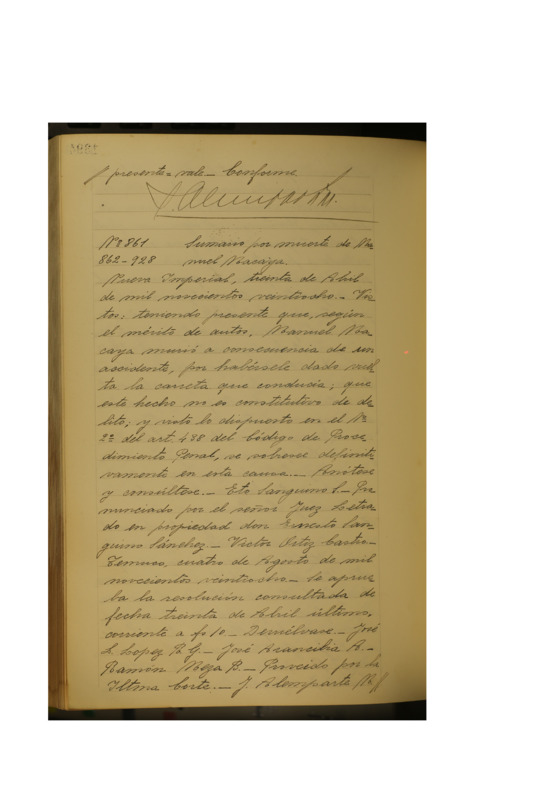 presente = vale _ Conforme
Nº 8861 Sumario por muerte de Ma
862-928 nuel Macaya.
Nueva Imperial, treinta de Abril
de mil novecientos veintiocho._ Vis
tos: teniendo presente que, según
el mérito de autos, Manuel Ma
caya murió a consecuencia de un
accidente, por habérsele dado vuel
ta la carreta que conducía; que
este hecho no es constitutivo de de
lito; y visto lo dispuesto en el Nº
2º del art. 438 del Código de Proce
dimiento Penal, se sobresee definiti
vamente en esta causa._ Anótese
y consúltese._ Eto Sanguino S._ Pro
nunciado por el señor Juez Letra
do en propiedad don Ernesto San
guino Sánchez_ Victor Ortiz Castro_
Temuco, cuatro de Agosto de mil
novecientos veintiocho_ Se aprue
ba la resolución consultada de
fecha treinta de Abril último,
corriente a fs 10_ Devuélvase._ José
L. Lopez R. G_ José Arancibia A._
Ramón Meza B._ Proveído por la
Iltma Corte._ J. Alemparte R.